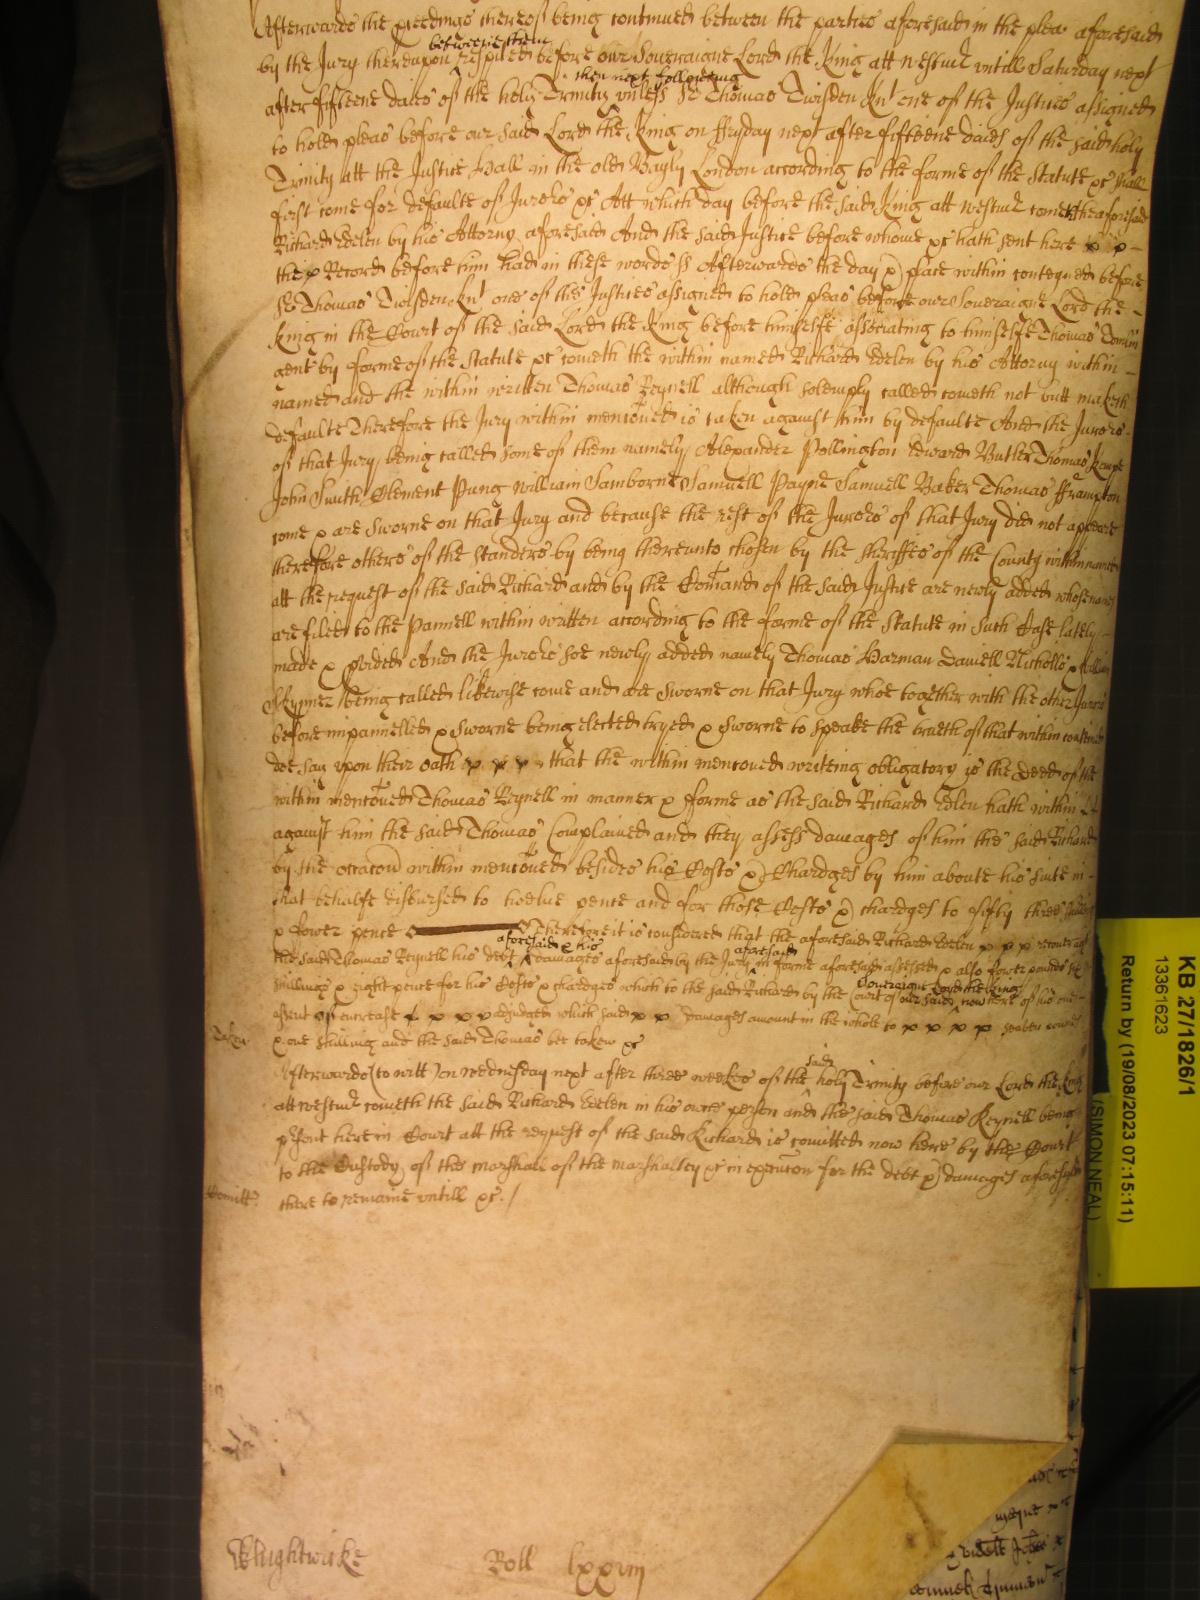 Afterwards the pceedings thereof being continued between the parties aforesaid in the plea aforesaid
by the Jury thereupon respited betweene them before our Soveraigne Lord the King att Westmr untill Saturday next
after fifteene daies of the holy Trinity then next following unless Sr Thomas Twisden Knt one of the Justices assigned
to hold pleas before our said Lord the King on ffryday next after fifteene daies of the said holy
Trinity att the Justice Hall in the old Bayly London according to the forme of the Statute &c shall
first come for defaulte of Jurors &c Att which day before the said King att Westmr cometh the aforesaid
Richard Edelen by his Attorny aforesaid And the said Justice before whome &c hath sent here x x
the x Record before him had in these words ss Afterwards the day & place within conteyned before
Sr Thomas Twisden Knt one of the Justices assigned to hold pleas before our Soveraigne Lord the
King in the Court of the said Lord the King before himselfe associating to himselfe Thomas
gent by forme of the Statute &c cometh the within named Richard Edelen by his Attorny within
named and the within written Thomas Reynell although solemply called cometh not butt maketh
defaulte Therefore the Jury within mencoued is taken against him by defaulte And the Jurors
of that Jury being called some of them namely Alexander Pollington Edward Butler Thomas Kempe
John Smith Clement Pung William Samborne Samuell Payne Samuell Baker Thomas Frampton
come & are Sworne on that Jury and because the rest of the Jurors of that Jury did not appeare
therefore others of the Standers by being thereunto chosen by the Sheriffes of the County within named
att the request of the said Richard and by the Comand of the said Justice are newly added whose names
are filed to the Pannell within written according to the forme of the Statute in such Case lately
made & pvided And the Jurors soe newly added namely Thomas Harman Daniell Nicholls & William
Skynner being called likewise come and are Sworne on that Jury whoe together with the other Jurors
before impannelled & Sworne being elected tryed & Sworne to speake the trueth of that within conteined
doe say upon their Oath x x x x that the within mencoued writeing obligatory is the Deed of the
within mencoued Thomas Reynell in manner & fforme as the said Richard Edlen hath within
against him the said Thomas Complained and they assess damages of him the said Richard
by the occacon within mencoued besides his Costs & Chardges by him about his suite in
that behalfe disbursed to twelve pence and for those Costs & chardges to fifty three shillings
& fower pence Therefore it is considered that the aforesaid Richard Edelen x x x recover agt
the said Thomas Reynell his debt aforesaid & his damages aforesaid by the Jury aforesaid in forme aforesaid assessed & also fower pounds
shillings & eight pence for his Costs & chardges which to the said Richard by the Court of our said Soveraigne Lord the King now here of his owne
assent of encrease x x x x adjudged which said x x damages amount in the whole to x x x x seaven pounds
& one shilling and the said Thomas bee taken &c
Taken
Afterwards (to witt) on Wednesday next after three weekes of the said holy Trinity before our Lord the King
att Westmr cometh the said Richard Edelen in his owne person and the said Thomas Reynell being
psent here in Court att the request of the said Richard is comitted now here by the Court
to the Custody of the Marshall of the Marshalsey &c in execucon for the debt & damages aforesaid
Comitt
there to remaine untill &c./
Roll lxxviij
KB 27/1826/1
13361623
Return by (19/08/2023 07:15:11)
(SIMON NEAL)